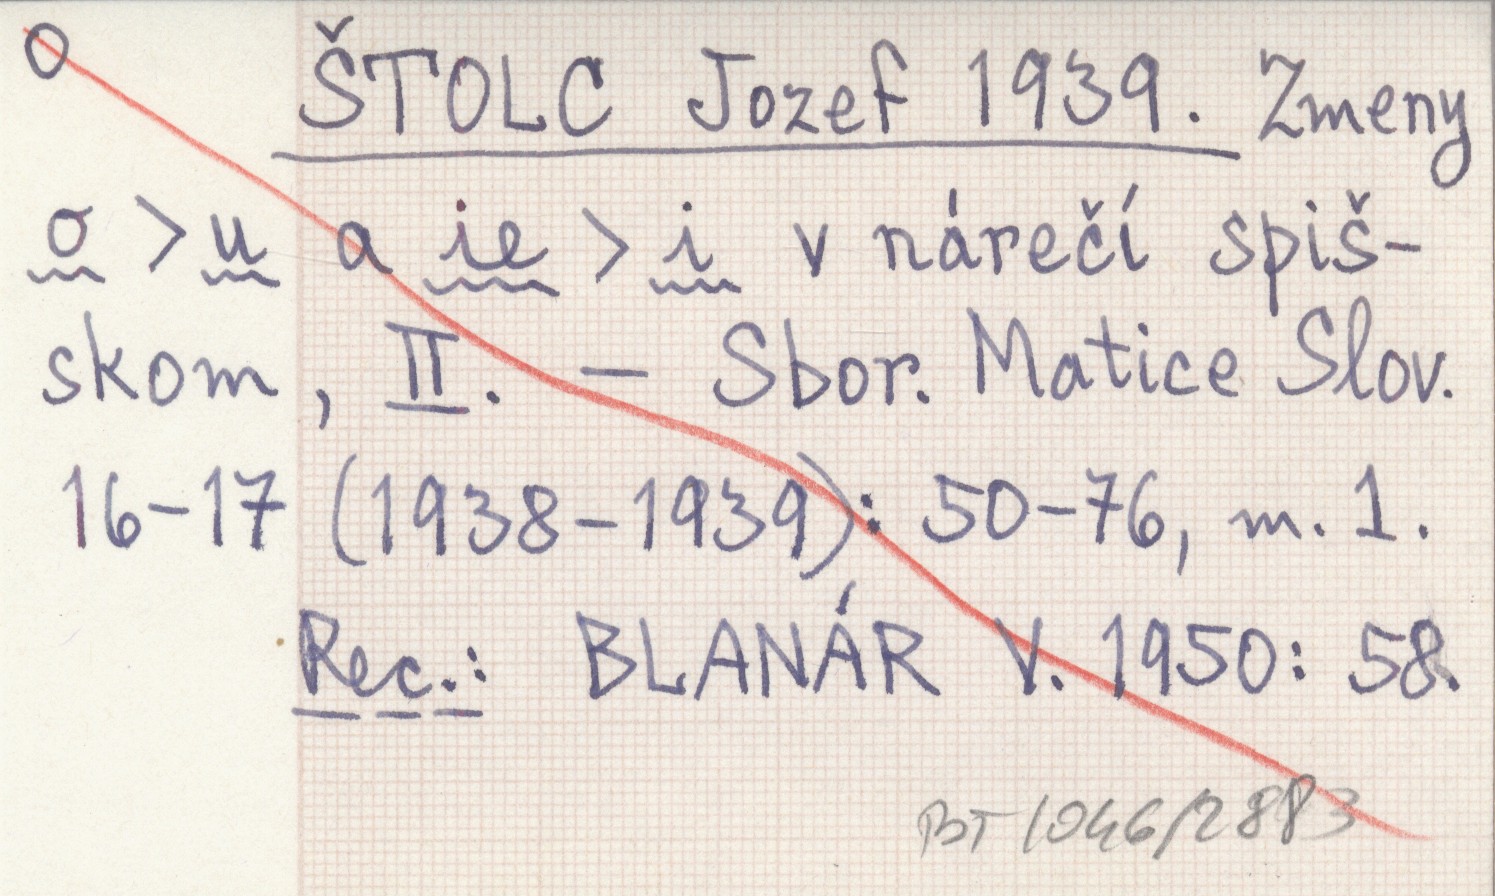 O ŠTOLC Jozef 1939. Zmeny
o > u a ie > i v nárečí spiš-
skom, II. – Sbor. Matice Slov.
16–17 (1938–1939): 50–76, m. 1.
Rec.: BLANÁR V. 1950: 58.
BT 1046/2883